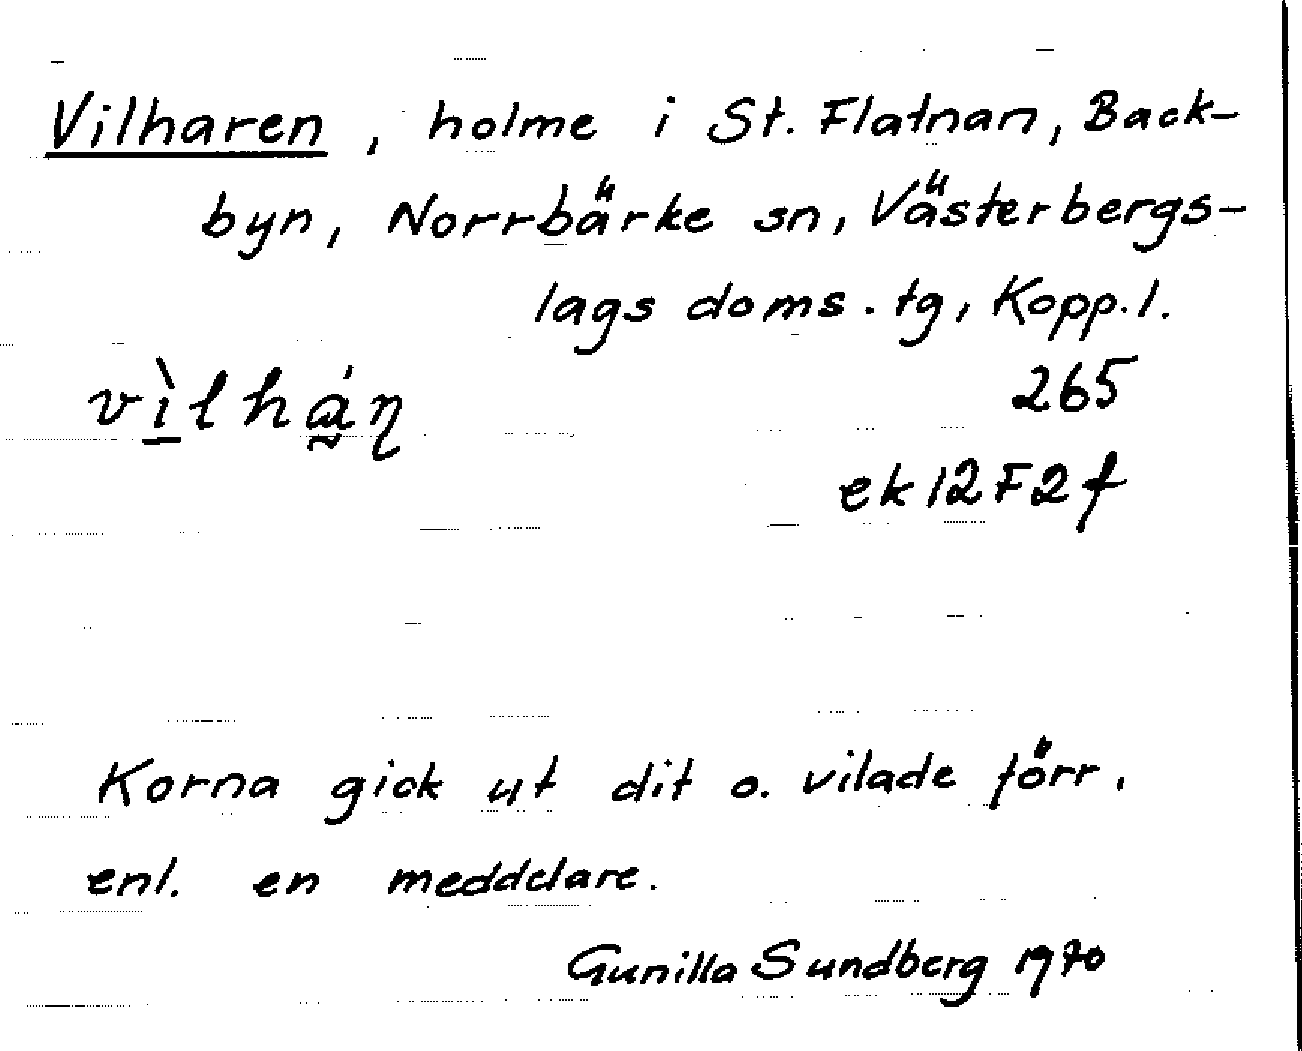 Vilharen, holme i St. Flatnan, Back-
byn, Norrbärke sn, Västerbergs-
lags doms. tg, Kopp. l.
vı̲̀lhá̰ɳ 265
ek 12 F 2 f
Korna gick ut dit o. vilade förr,
enl. en meddelare.
Gunilla Sundberg 1970